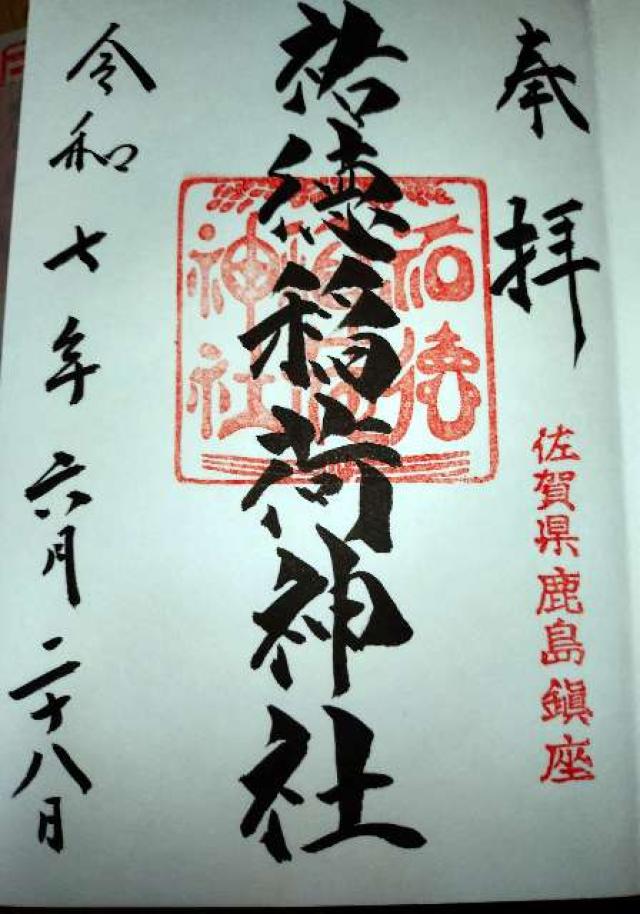 奉拝
佐賀県鹿島鎮座
祐徳稲荷神社
祐徳
稲荷
神社
令和七年六月二十八日